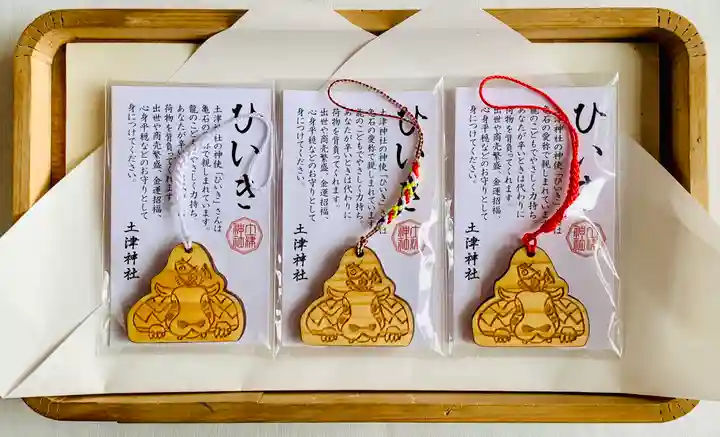 ひいき
土津神社の神使「ひいき」さんは
亀石の愛称で親しまれています。
龍のこどもでやさしく力持ち、
あなたが辛いときは代わりに
荷物を背負ってくれます
出世や商売繁盛、金運招福、
心身平穏などのお守りとして
身につけてください。
土津神社
ひいき
土津神社の神使「ひいき」さんは
亀石の愛称で親しまれています。
龍のこどもでやさしく力持ち、
あなたが辛いときは代わりに
荷物を背負ってくれます
出世や商売繁盛、金運招福、
心身平穏などのお守りとして
身につけてください。
土津神社
ひいき
土津神社の神使「ひいき」さんは
亀石の愛称で親しまれています。
龍のこどもでやさしく力持ち、
あなたが辛いときは代わりに
荷物を背負ってくれます
出世や商売繁盛、金運招福、
心身平穏などのお守りとして
身につけてください。
土津神社